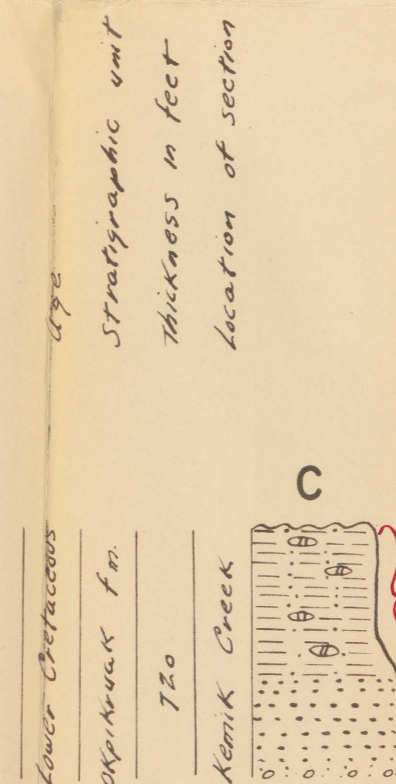 Age
Stratigraphic unit
Thickness in feet
Location of section
C
Lower Cretaceous
Okpikruak fm.
720
Kemik Creek